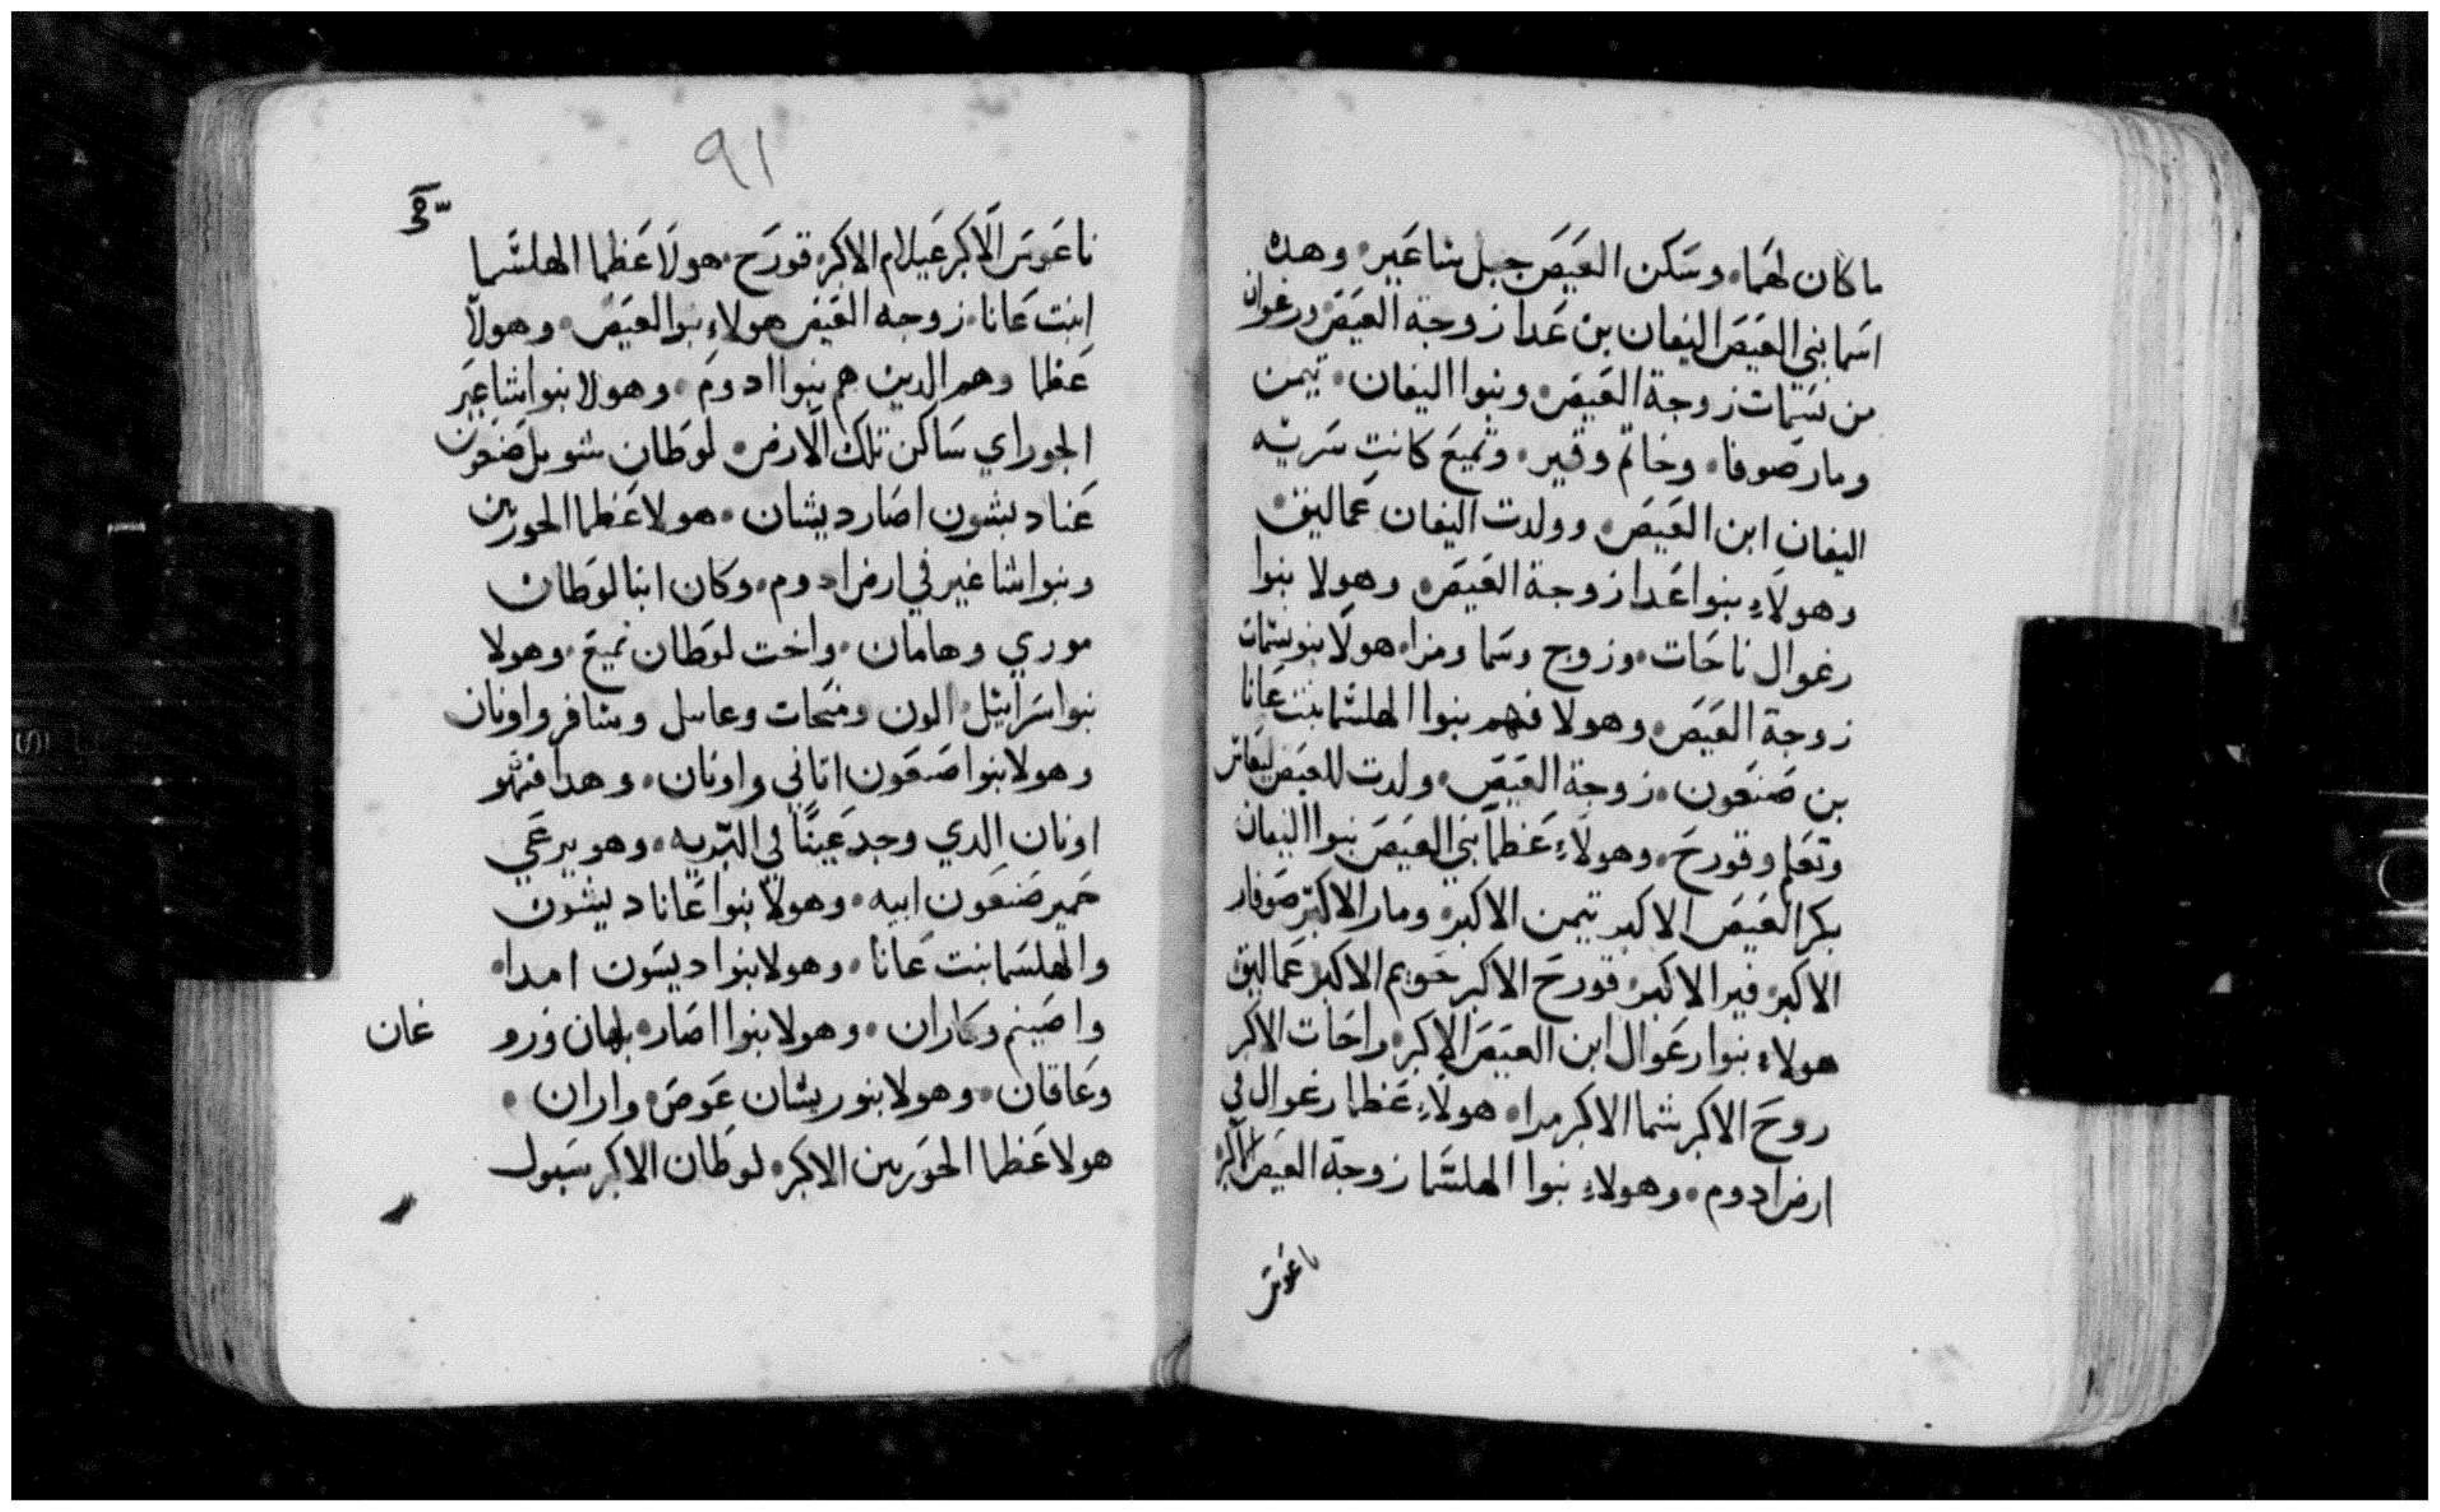 ما كان لهما. وسَكن العَيصَ جبل شاعَير. وهده
اسَما بني العَيصَ اليفان بن عَدا زوجة العَيصَ ورغوان
من بسَمات زوجة العَيصَ. وبنوا اليفان. تيمن
ومار صَوفا. وخاتم وقير. وتميعَ كانت سَريته
اليفان ابن العَيصَ. وولدت اليفان عَماليق.
وهولاءِ بنوا عَدا زوجة العَيصَ. وهولا بنوا
رغوال ناحَات. وزوج وسَما ومزا. هولا بنو بسَمات
زوجة العَيصَ. وهولا فهم بنوا الهلسَما بنت عَانا
بن صَنعَون. زوجة العَيصَ. ولدت للعيصَ
وتعَلم وقورحَ. وهولاءِ عَظما بني العَيصَ بنوا اليفان
بكر العَيصَ الاكبر تيمن الاكبر. ومار الاكبر صَوفار
الاكبر. قير الاكبر. قورحَ الاكبر حَويم الاكبر عَماليق
هولاءِ بنوا رغَوال ابن العَيصَ الاكبر. راحَات الاكبر
روحَ الاكبر شما الاكبر مدا. هولاءِ عَظما رغوال في
ارض ادوم. وهولاءِ بنوا الهلسَما زوجة العيصَ الاكبر
ناعَوسَ
٩١
ناعَوسَ الاكبر عَيلام الاكبر. قورَح. هولا عَظما الهلسَما
ابنت عَانا. زوجه العَيصَ هولاءِ بنوا العَيصَ. وهولا
عَظما وهم الدين هم بنوا ادوم. وهولا بنوا شاعَير
الجوراي سَاكن تلك الارض. لوطان شوبل صَنعَون
عَنا ديشون اصَار ديشان. هولا عَظما الحورين
وبنوا شاغير في ارض ادوم. وكان ابنا لوطان
موري وهامان. واخت لوطان تميعَ. وهولا
بنوا سَرابيل. الون ومنَحات وعابيل وشافر واونان
وهولا بنوا صَنعَون اتاني واونان. وهدا فهو
اونان الدي وجد عَينًا في البَريه. وهو يرعَي
حَمير صَنعَون ابيه. وهولا بنوا عَانا ديشون
والهلسَما بنت عَانا. وهولا بنوا ديسَون امدا.
واصَينم وكاران. وهولا بنوا اصَار. بلهان وزو
غان
وعَاقان. وهولا بنو ريشان عَوصَ. واران.
هولا عَظما الحَورين الاكبر. لوطان الاكبر سَبول